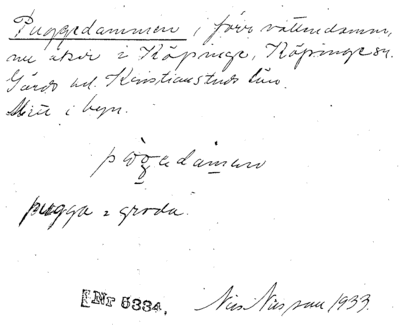 Puggedammen, förr vattendamm,
nu åker i Köpinge, Köpinge sn.
Gärds hd. Kristianstads län.
Mitt i byn.
pòg̱adam̱en
pugga = groda.
[Nr 5334.
Nils Nilsson 1933.